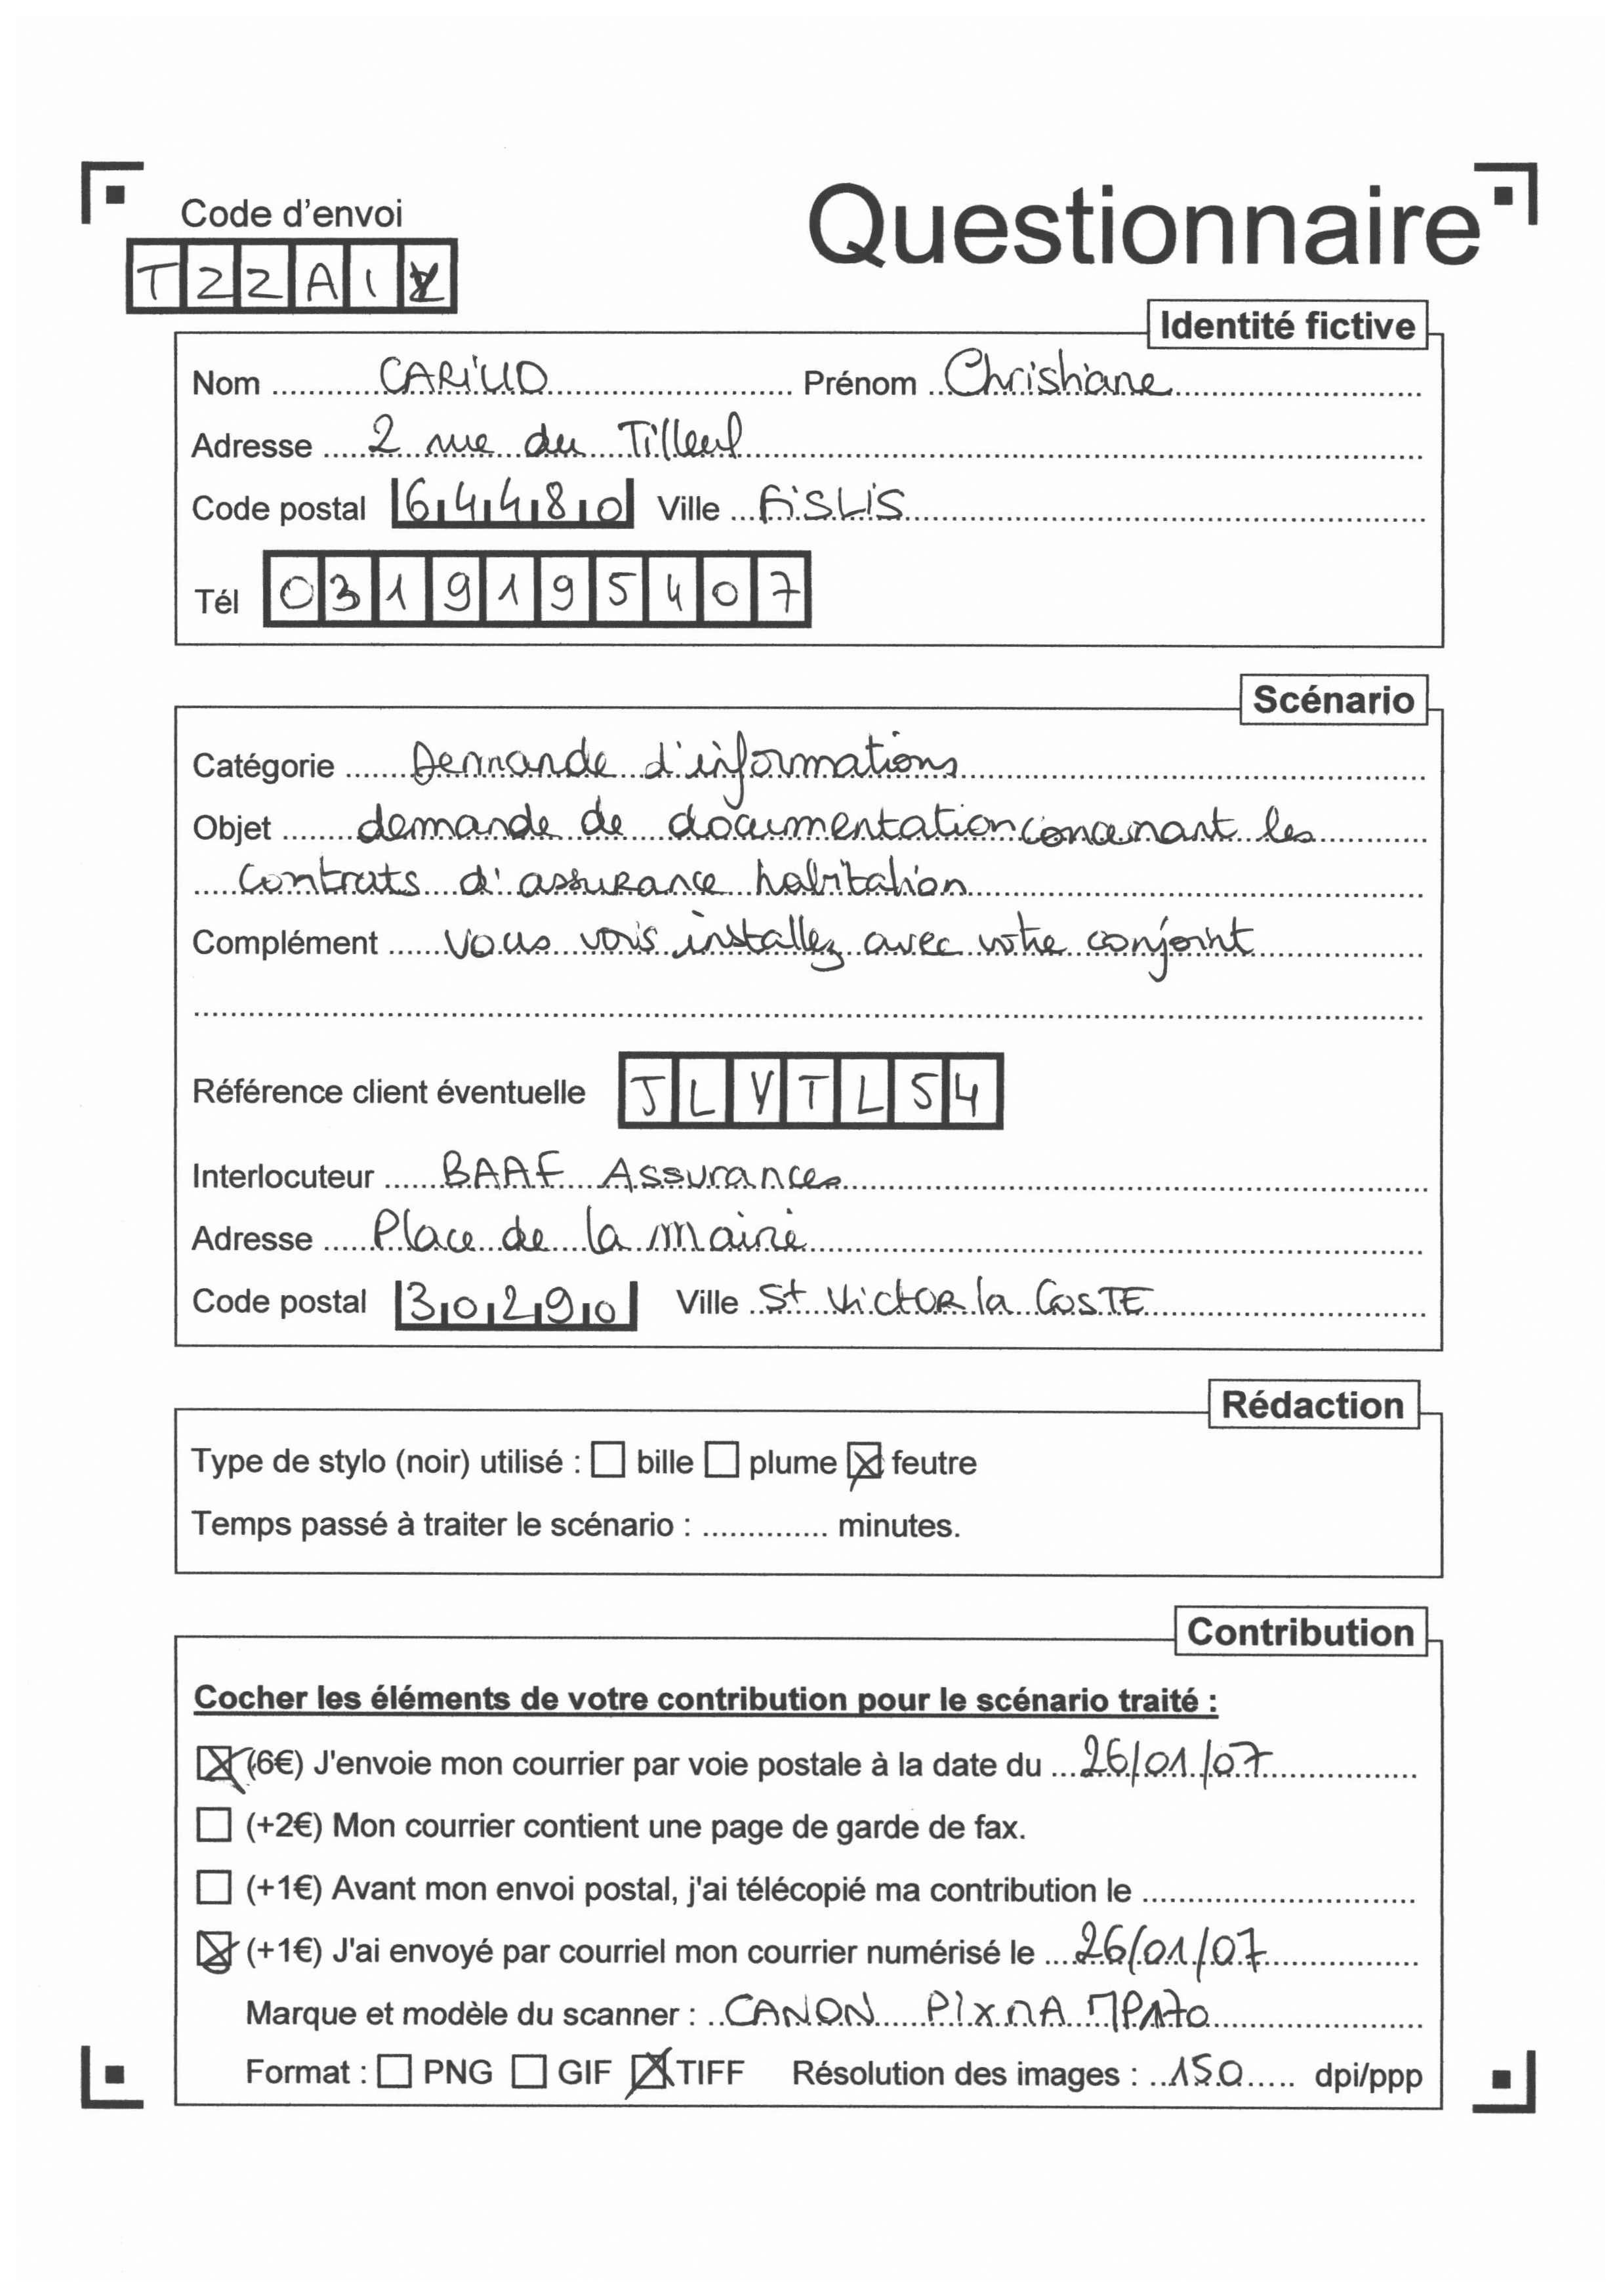 Code d'envoi
Questionnaire
T22A1
Identité fictive
Nom CARiUD Prénom Christiane
Adresse 2 rue du Tilleul
Code postal 64480 Ville FiSLiS
Tél 0319195407
Scénario
Catégorie Demande d'informations
Objet demande de documentation concernant les
contrats d'assurance habitation
Complément Vous vous installez avec votre conjoint
Référence client éventuelle JLVTL54
Interlocuteur BAAF Assurances
Adresse Place de la mairie
Code postal 30290 Ville St Victor la CosTE
Rédaction
Type de stylo (noir) utilisé : bille plume feutre
Temps passé à traiter le scénario : minutes.
Contribution
Cocher les éléments de votre contribution pour le scénario traité :
(6€) J'envoie mon courrier par voie postale à la date du 26/01/07
(+2€) Mon courrier contient une page de garde de fax.
(+1€) Avant mon envoi postal, j'ai télécopié ma contribution le
(+1€) J'ai envoyé par courriel mon courrier numérisé le 26/01/07
Marque et modèle du scanner : CANON PIXMA MP170
Format : PNG GIF TIFF Résolution des images : 150 dpi/ppp